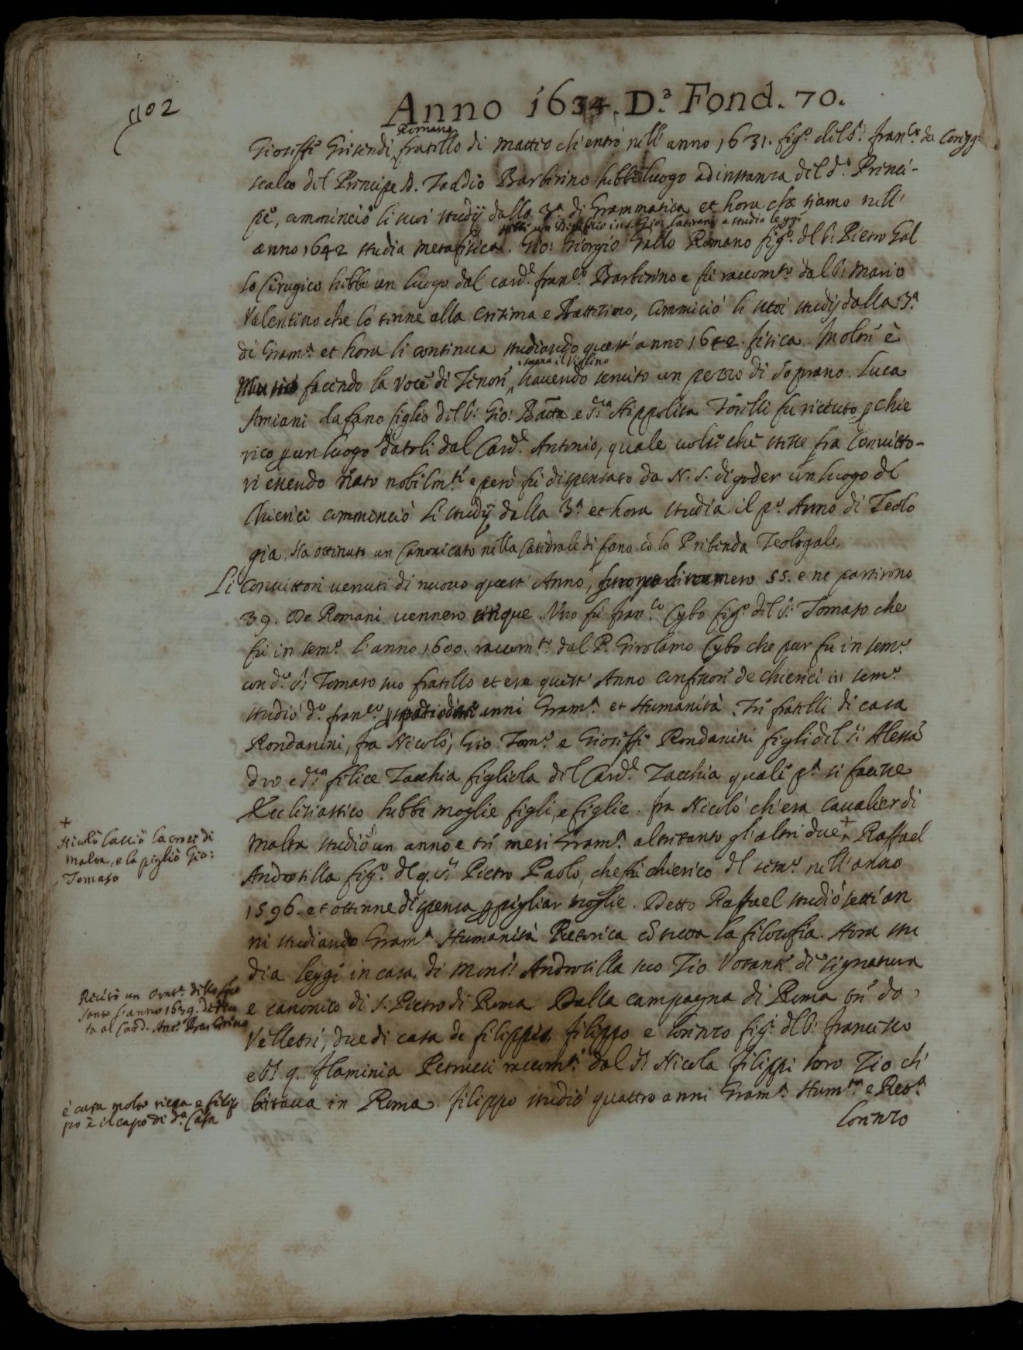 402
Anno 1634. D.ª Fond. 70.
Romano
Gioseffe Grisendi, fratello di Matteo ch'entrò nell'anno 1631. fig.º del S.r Fran.co da Coreggi
scalco del Principe D. Taddio Barberino hebbe luogo ad instanza del d.º Princi-
pe, cominciò li suoi studij dalla 3.ª di Grammatica et hora che siamo nell'
a studia leggi
anno 1642 studia metafisica. Gio: Giorgio Gallo Romano fig.º del S.r Pietro Gal
lo Cirugico hebbe un luogo dal card.l Fran.co Barberino e fù raccom.to dal S.r Mario
Valentino che lo tenne alla Cresima e Battesimo, Cominciò li suoi studij dalla 3.ª
di Gram.ª et hora li continua studiando quest'anno 1642 fisica. Molto è
suona il Violino
Musico facendo la Voce di Tenore, havendo servito un pezzo di Soprano. Luca
Amiani da Fano figlio del S.r Gio: Batta e S.ra Hippolita Torelli fu riceuuto per chie
rico per un luogo datoli dal Card.l Antonio, quale uolse che stesse fra Convitto-
ri essendo nato nobilm.te e però fù dispensato da N. S. di goder un luogo de
Chierici cominciò li studij dalla 3.ª et hora studia il p.º Anno di Teolo
gia. Ha ottenuto un Canonicato nella Catedrale di Fano cò la Prebenda Teologale.
Li Convittori venuti di nuovo quest'Anno, furono di numero 55. e ne partirono
39. De Romani vennero cinque. Uno fù Fran.co Cybo fig.º del S.r Tomaso che
fù in sem.º l'anno 1600. raccom.to dal P. Girolamo Cybo che pur fù in sem.º
con d.º S.r Tomaso suo fratello et era quest'Anno confessore de chierici in sem.º
studiò d.º Fran.co anni Gram.ª et Humanità. Tre fratelli di casa
Rondanini, fra Nicolò, Gio: Tom.º e Gioseffe Rondanini figli del S.r Alessā
dro e S.ra Felice Zacchia figliola del Card.l Zacchia quale p.ª si facesse
Ecclesiastico hebbe moglie figli, e figlie. Fra Nicolò ch'era Cavalier di
+
Nicolò lasciò la croce di
Malta, e la pigliò Gio:
Tomaso
Malta studiò un anno e tre mesi Gram.ª altretanto gl'altri due + Raffael
Androsilla fig.º del q. S.r Pietro Paolo, che fù chierico del sem.º nell'anno
1596. et ottenne dispensa per pigliar moglie. Detto Raffael studiò sette an
ni studiando Gram.ª Humanità Retorica e la filosofia. Hora stu
dia leggi in casa di Mons.r Androsilla suo Zio Votante di Signatura
e canonico di S. Pietro di Roma. Dalla campagna di Roma
l'anno 1639.
al Card. Ant.º Barberino
Velletri, due di casa de Filippis, Filippo e Lorenzo fig.i del S.r Francesco
e S.ra q. Flaminia Petrucci raccom.ti dal S.r Nicola Filippi loro Zio ch'
è casa molto ricca e Filip
po è il capo di d.ª Casa
bitaua in Roma. Filippo studiò quattro anni Gram.ª Hum.tà e Ret.ª
Lorenzo